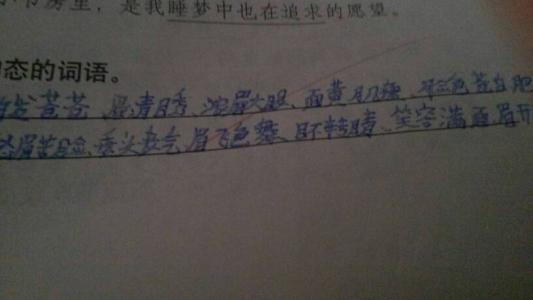 书房里，是我睡梦中也在追求的愿望。
态的词语。
发苍苍、眉清目秀、浓眉大眼、面黄肌瘦、脸色苍白、肥
愁眉苦脸、垂头丧气、眉飞色舞、目不转睛、笑容满面、眉开